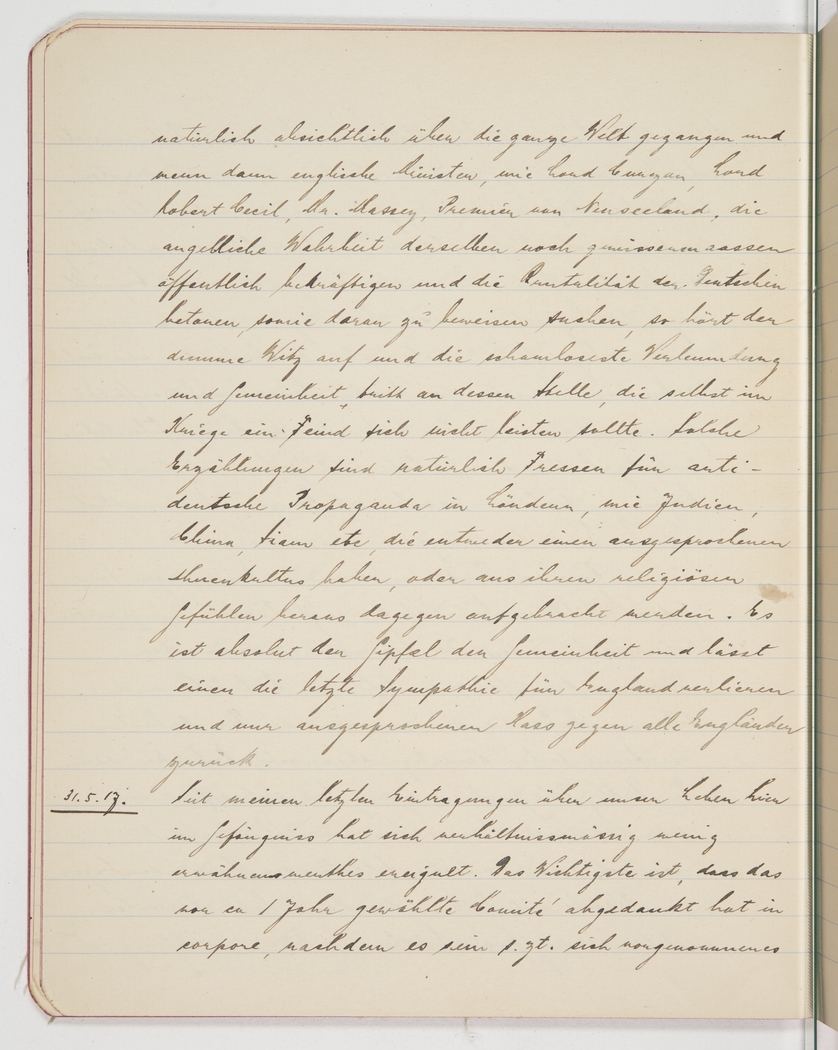 natürlich absichtlich über die ganze Welt gegangen und
wenn dann englische Minister, wie Lord Curzon, Lord
Robert Cecil, Mr. Massey, Premier von Neuseeland, die
angebliche Wahrheit derselben noch gewissermassen
öffentlich bekräftigen und die Brutalität der Deutschen
betonen, sowie daran zu beweisen suchen, so hört der
dumme Witz auf und die schamloseste Verleumdung
und Gemeinheit tritt an dessen Stelle, die selbst im
Kriege ein Feind sich nicht leisten sollte. Solche
Erzählungen sind natürlich Fressen für anti-
deutsche Propaganda in Ländern, wie Indien,
China, Siam etc, die entweder einen ausgesprochenen
Ahnenkultus haben, oder aus ihren religiösen
Gefühlen heraus dagegen aufgebracht werden. Es
ist absolut der Gipfel der Gemeinheit und lässt
einen die letzte Sympathie für England verlieren
und nur ausgesprochenen Hass gegen alle Engländer
zurück.
31.5.17. Seit meinen letzten Eintragungen über unser Leben hier
im Gefängniss hat sich verhältnissmässig wenig
erwähnenswerthes ereignet. Das Wichtigste ist, dass das
vor ca 1 Jahr gewählte Comité abgedankt hat in
corpore, nachdem es sein s.zt. sich vorgenommenes